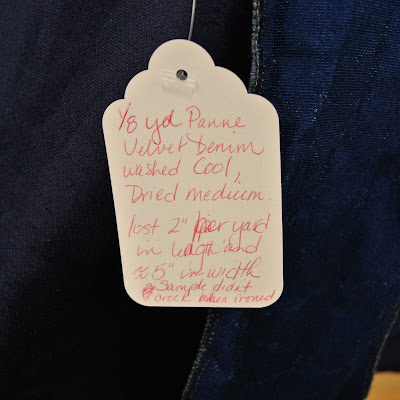 1/8 yd Panne
Velvet Denim
washed Cool,
Dried medium.
lost 2" per yard
in length and
≈ 5" in width
Sample didnt
crock when ironed